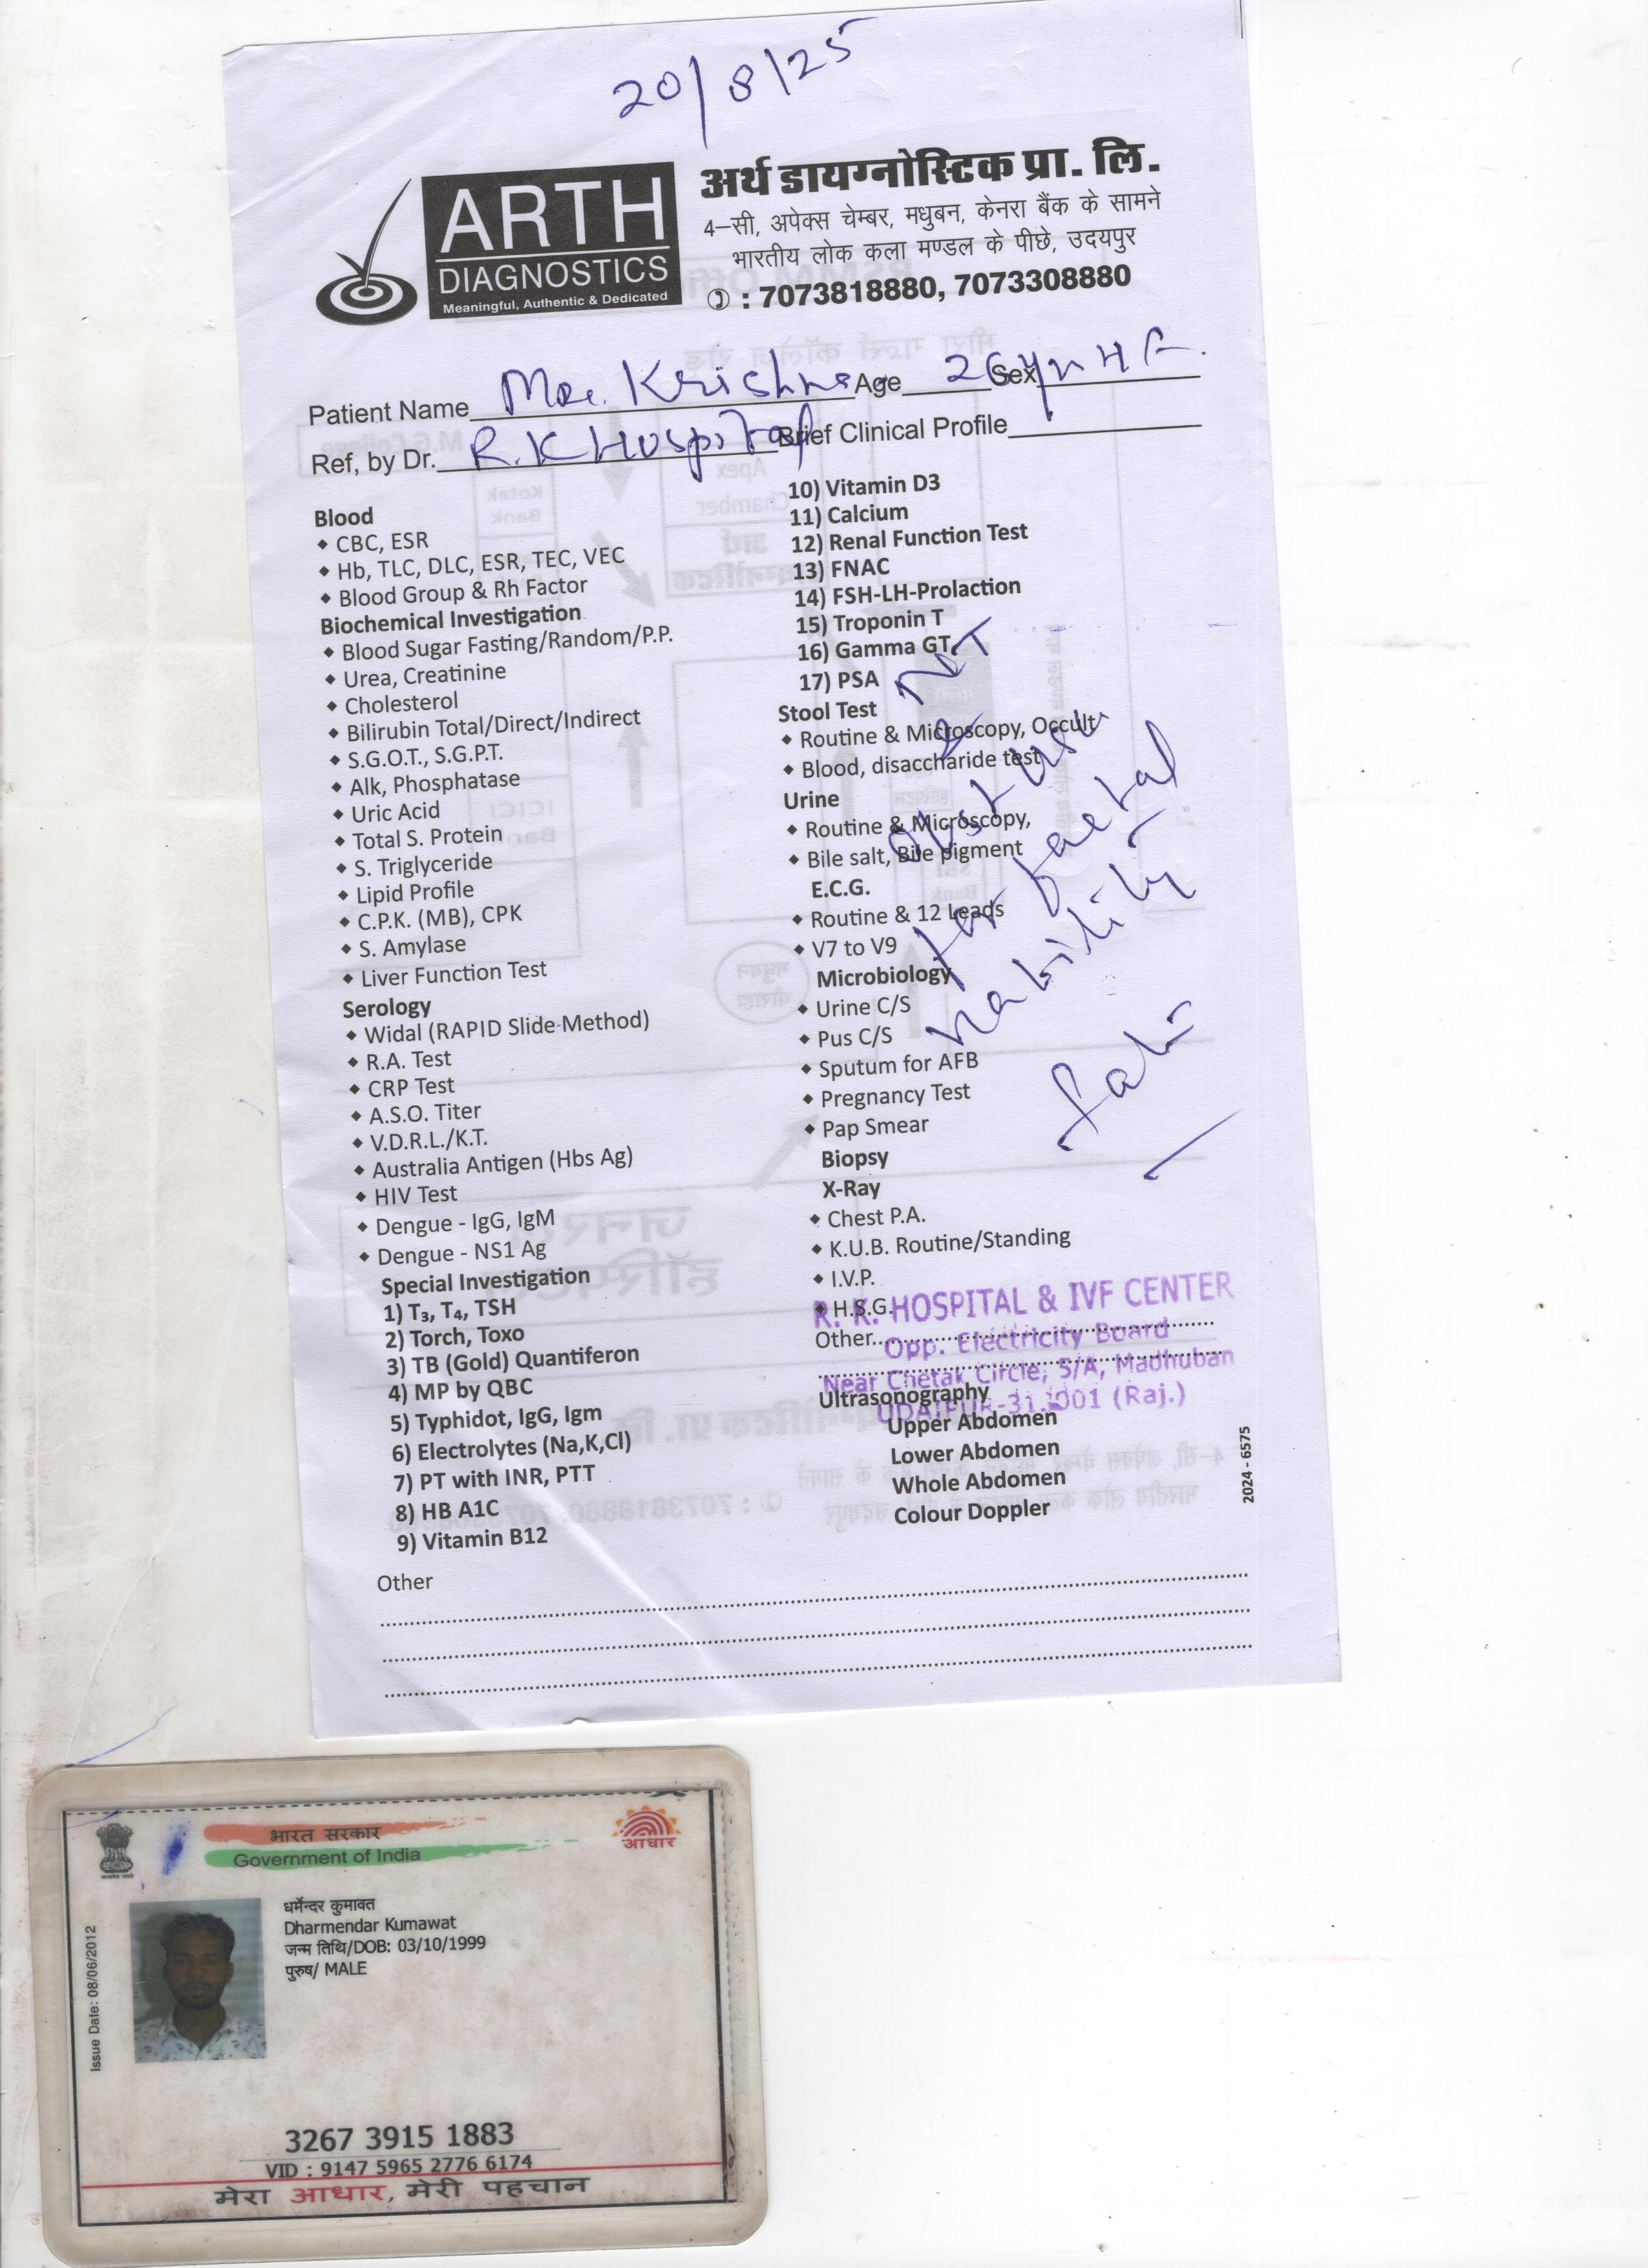 20/8/25
ARTH
DIAGNOSTICS
Meaningful, Authentic & Dedicated
अर्थ डायग्नोस्टिक प्रा. लि.
4–सी, अपेक्स चेम्बर, मधुबन, केनरा बैंक के सामने
भारतीय लोक कला मण्डल के पीछे, उदयपुर
: 7073818880, 7073308880
Patient Name Krishna Age 26yr Sex F.
Ref, by Dr. R.K Hospital Brief Clinical Profile
Blood
CBC, ESR
Hb, TLC, DLC, ESR, TEC, VEC
Blood Group & Rh Factor
Biochemical Investigation
Blood Sugar Fasting/Random/P.P.
Urea, Creatinine
Cholesterol
Bilirubin Total/Direct/Indirect
S.G.O.T., S.G.P.T.
Alk, Phosphatase
Uric Acid
Total S. Protein
S. Triglyceride
Lipid Profile
C.P.K. (MB), CPK
S. Amylase
Liver Function Test
Serology
Widal (RAPID Slide Method)
R.A. Test
CRP Test
A.S.O. Titer
V.D.R.L./K.T.
Australia Antigen (Hbs Ag)
HIV Test
Dengue - IgG, IgM
Dengue - NS1 Ag
Special Investigation
1) T₃, T₄, TSH
2) Torch, Toxo
3) TB (Gold) Quantiferon
4) MP by QBC
5) Typhidot, IgG, Igm
6) Electrolytes (Na,K,Cl)
7) PT with INR, PTT
8) HB A1C
9) Vitamin B12
10) Vitamin D3
11) Calcium
12) Renal Function Test
13) FNAC
14) FSH-LH-Prolaction
15) Troponin T
16) Gamma GT
17) PSA
Stool Test
Routine & Microscopy, Occult
Blood, disaccharide test
Urine
Routine & Microscopy,
Bile salt, Bile pigment
E.C.G.
Routine & 12 Leads
V7 to V9
Microbiology
Urine C/S
Pus C/S
Sputum for AFB
Pregnancy Test
Pap Smear
Biopsy
X-Ray
Chest P.A.
K.U.B. Routine/Standing
I.V.P.
H.S.G.
Other
Ultrasonography
Upper Abdomen
Lower Abdomen
Whole Abdomen
Colour Doppler
for faetal
R. K. HOSPITAL & IVF CENTER
Opp. Electricity Board
Near Chetak Circle, 5/A, Madhuban
UDAIPUR-313001 (Raj.)
2024 - 6575
Other
भारत सरकार
Government of India
आधार
Issue Date: 08/06/2012
धर्मेन्दर कुमावत
Dharmendar Kumawat
जन्म तिथि/DOB: 03/10/1999
पुरुष/ MALE
3267 3915 1883
VID : 9147 5965 2776 6174
मेरा आधार, मेरी पहचान